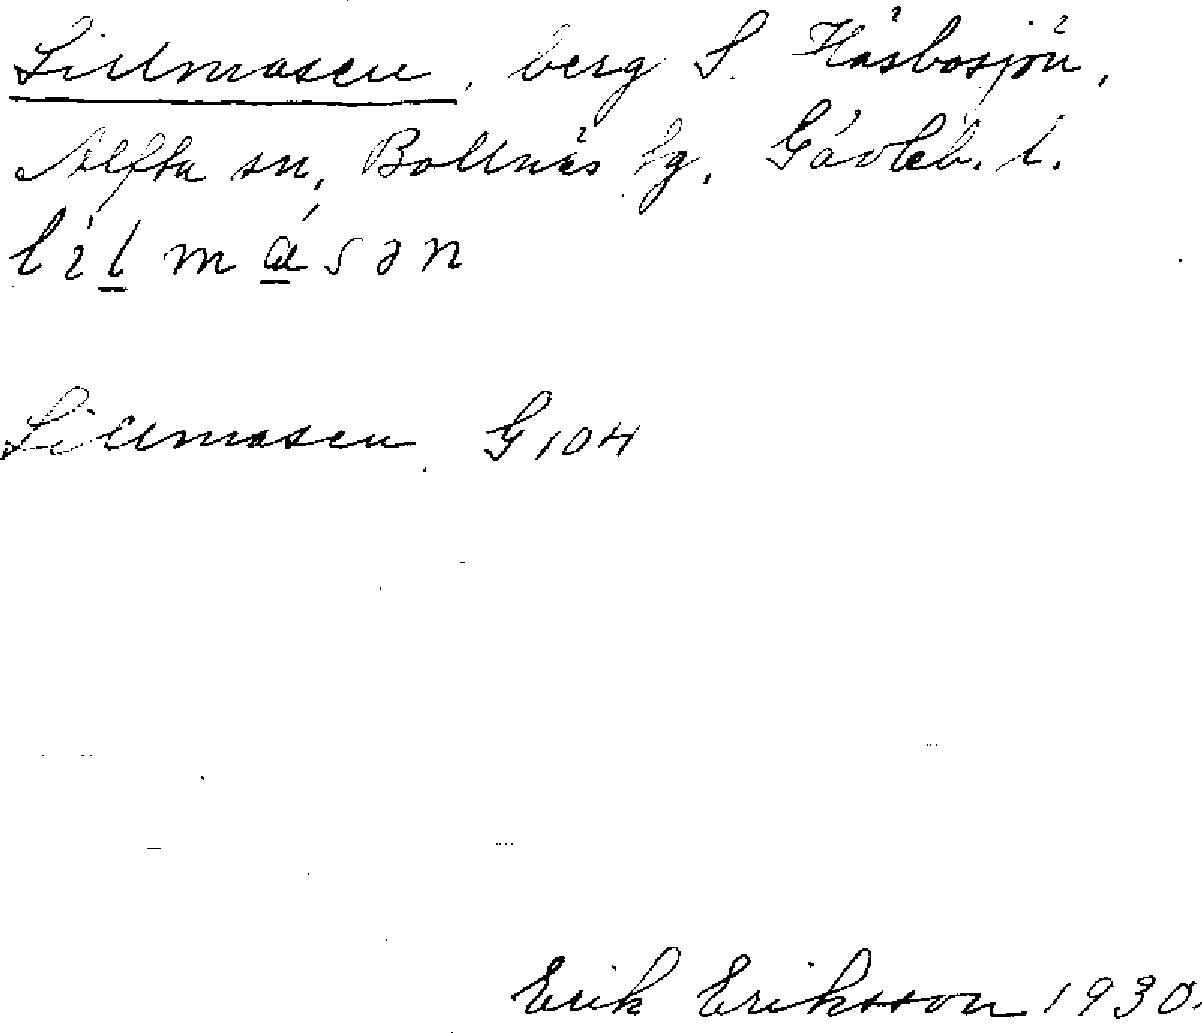 Lillmasen, berg S. Håsbosjön,
Alfta sn, Bollnäs tg, Gävleb. l.
lilmásən
Lillmasen G104
Erik Eriksson 1930.